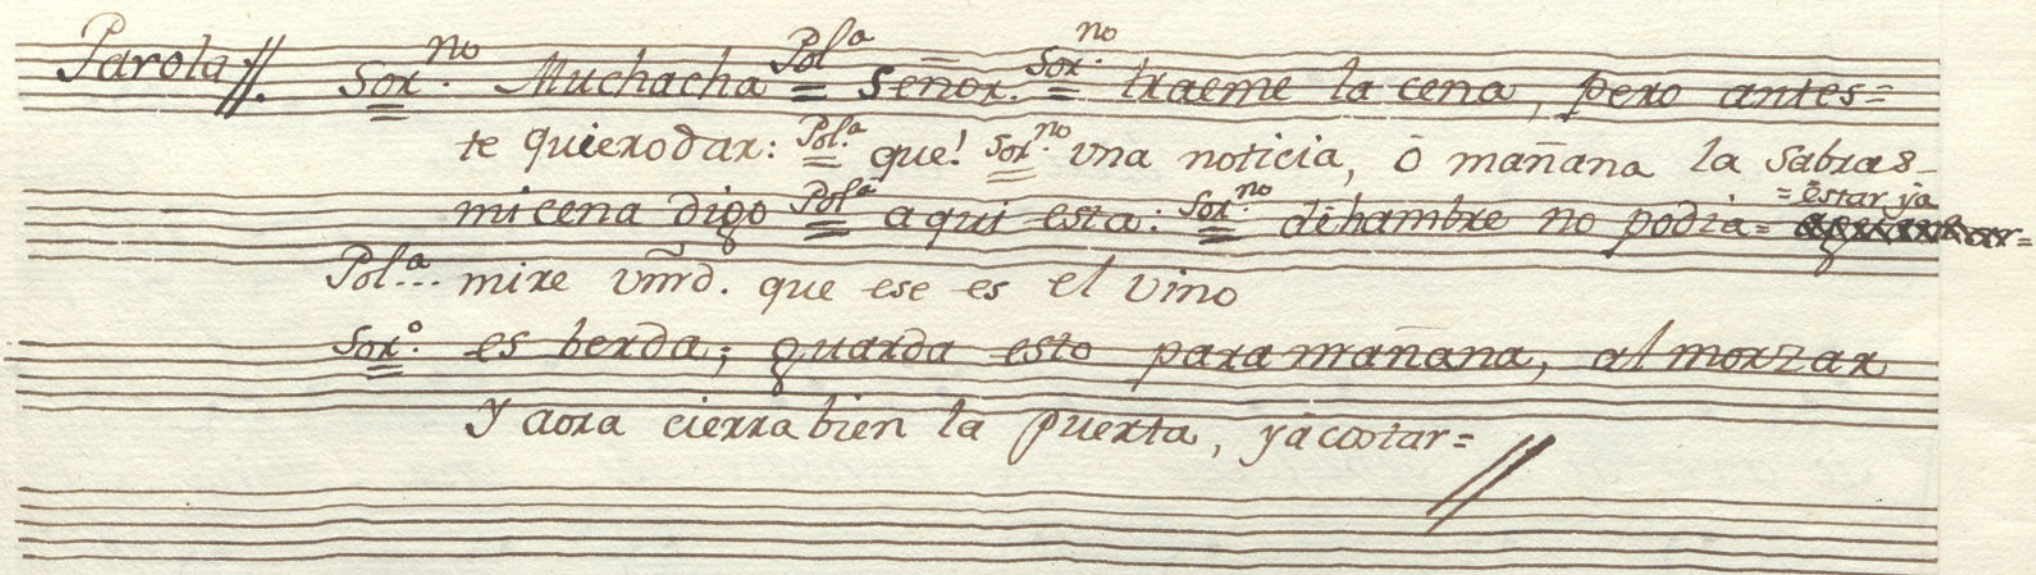 Parola//. Sor.no Muchacha Pol.a Señor. Sor.no traeme la cena, pero antes=
te quierodar: Pol.a que! Sor.no una noticia, ō mañana la Sabras
mi cena digo Pol.a aqui esta: Sor.no dēhambre no podia= =ēstar yā
Pol.a... mire vm̄rd. que ese es el vino
Sor.o es berda; guarda esto para mañana, almorzar
y aora cierra bien la puerta, yā costar=//